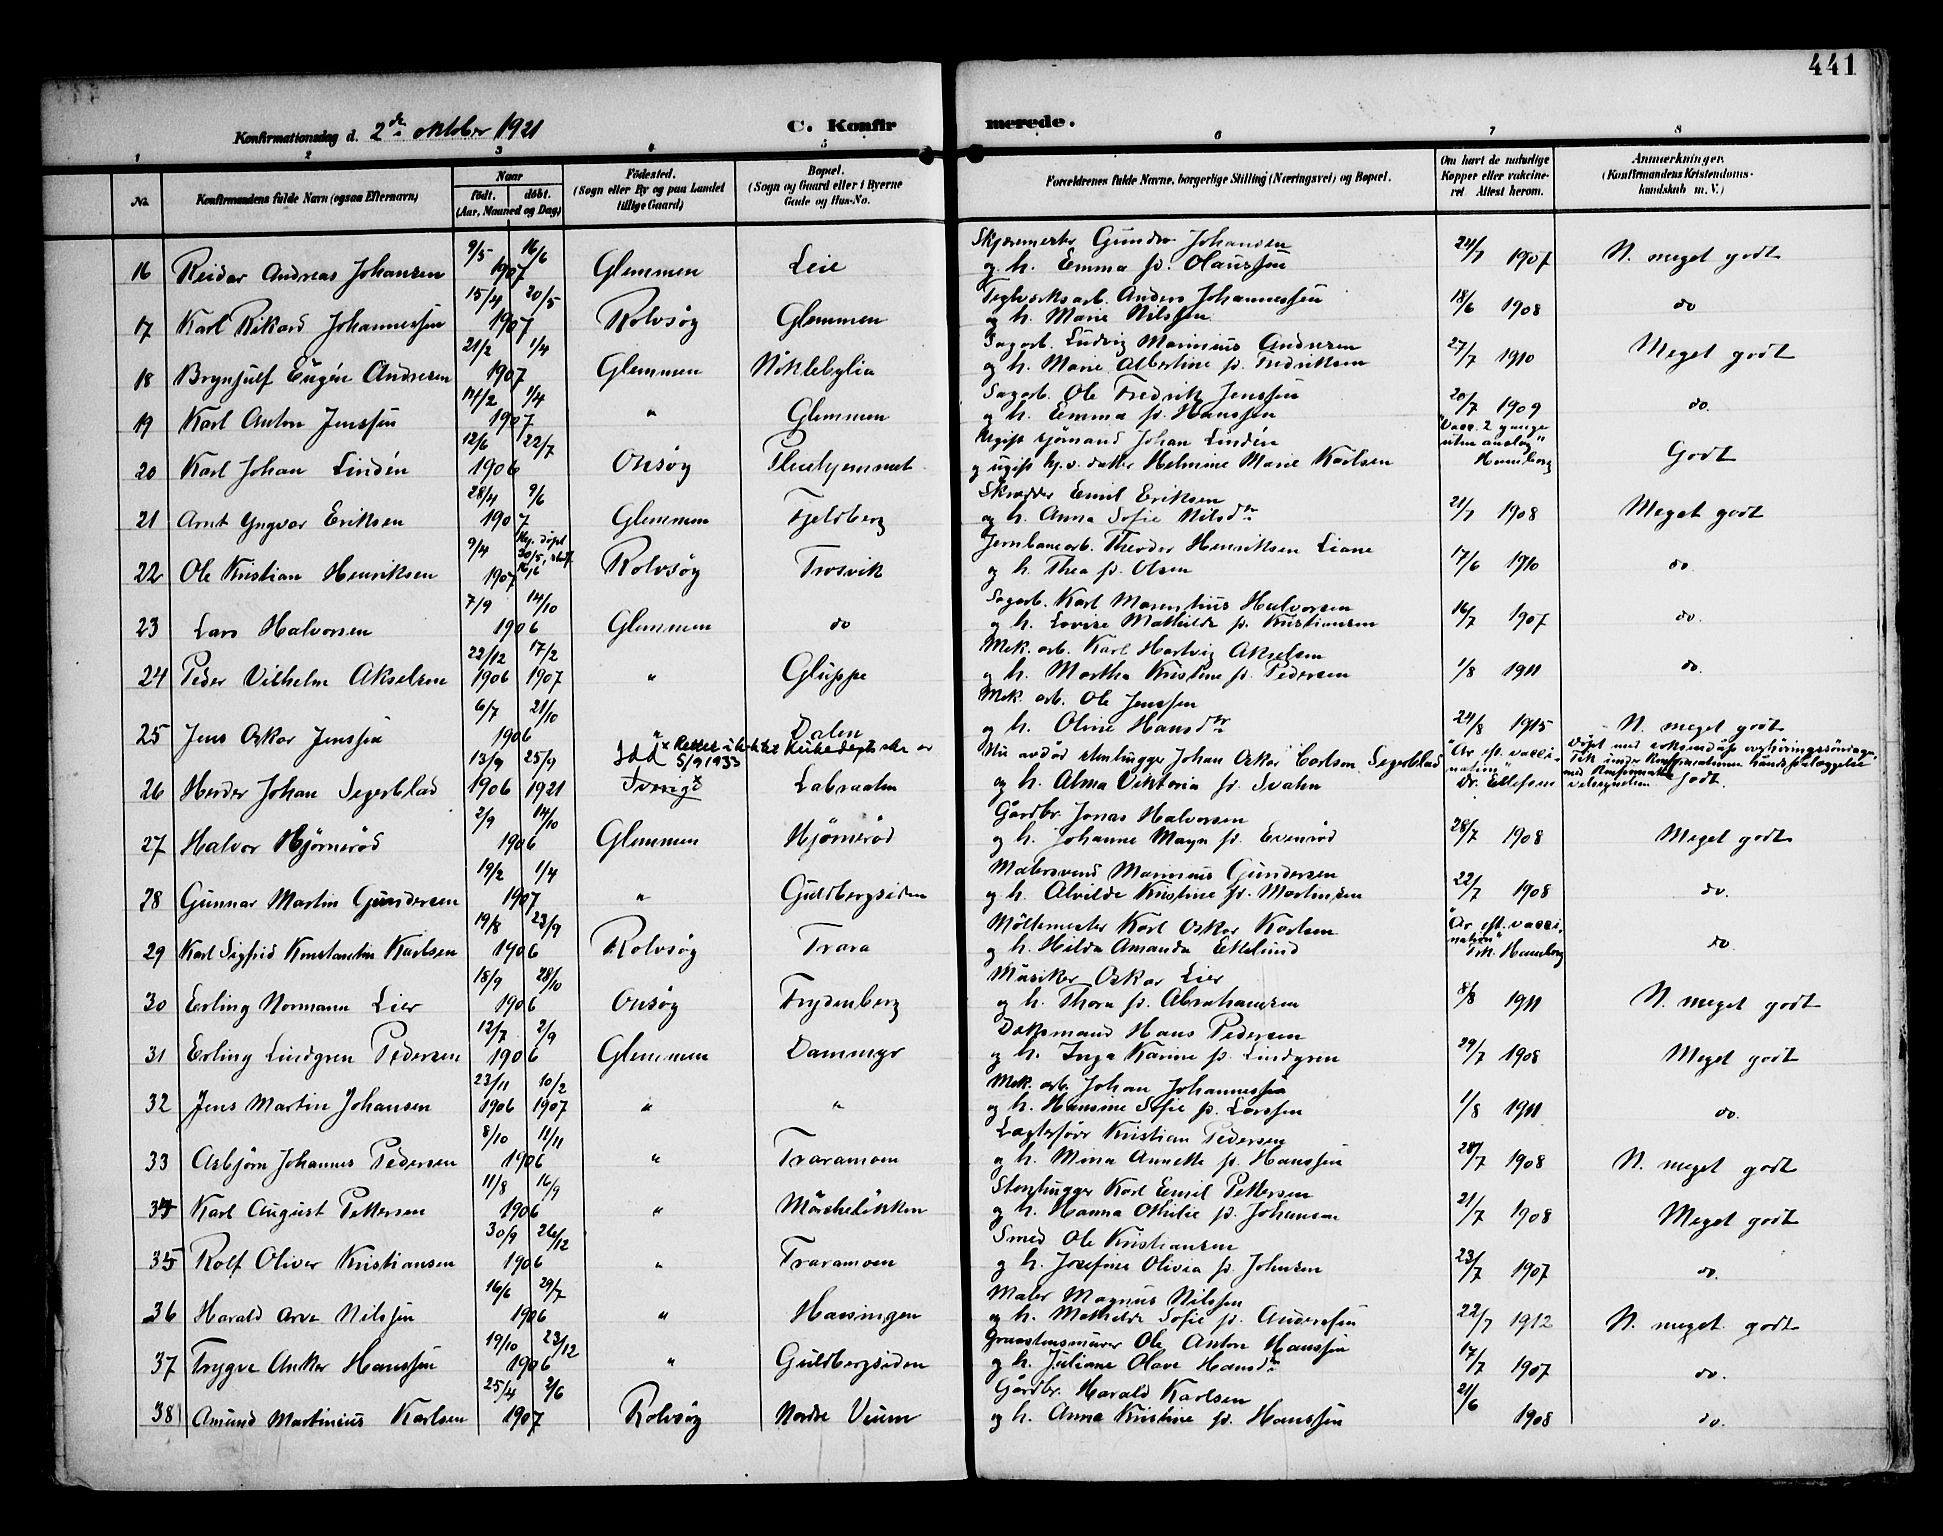 441
Konfirmationsdag d. 2den oktober 1921
C. Konfirmerede.
1 2 3 4 5 6 7 8
No. Konfirmandens fulde Navn (ogsaa Efternavn) Naar født. døbt. (Aar, Maaned og Dag) Fødested. (Sogn eller By og paa Landet tillige Gaard) Bopæl. (Sogn og Gaard eller i Byerne Gade og Hus-No. Forældrenes fulde Navne, borgerlige Stilling (Næringsvei) og Bopæl. Om havt de naturlige Kopper eller vakcineret. Attest herom. Anmærkninger. (Konfirmandens Kristendomskundskab m. V.)
16 Reidar Andreas Johansen 9/5 16/6 1907 Glemmen Leie Gunder Johansen og h. Emma f. Olaussen 24/7 1907 N. meget godt
17 Karl Rikard Johannessen 15/4 20/5 1907 Rolvsøy Glemmen Teglverksarb. Anders Johannessen og h. Marie Nilssen 18/6 1908 do
18 Brynjulf Eugén Andresen 21/2 1/4 1907 Glemmen Nöklebylia Sagarb. Ludvig Marinius Andresen og h. Marie Albertine f. Fredriksen 27/7 1910 Meget godt
19 Karl Anton Jenssen 14/2 1/4 1907 " Glemmen Sagarb. Ole Fredrik Jenssen og h. Emma f. Hanssen 20/7 1909 do.
20 Karl Johan Lindén 12/6 22/7 1906 Onsøy Pleiehjemmet Ugift sjömand Johan Lindén og ugift Helmine Marie Karlsen "Vacc. 2 gange uten anslag" Homborg Godt
21 Arnt Yngvar Eriksen 28/4 9/6 1907 Glemmen Fjeldberg Skrædder Emil Eriksen og h. Anna Sofie Nilsdtr 21/7 1908 Meget godt
22 Ole Kristian Henriksen 9/4 1907 döpt 30/5, Rolvsøy Trosvik Jernbanearb. Theodor Henriksen Liane og h. Thea f. Olsen 17/6 1910 do
23 Lars Halvorsen 7/9 14/10 1906 Glemmen do Sagarb. Karl Marentius Halvorsen og h. Lovise Mathilde f. Kristiansen 16/7 1907 do.
24 Peder Vilhelm Akselsen 22/12 1906 17/2 1907 " Gluppe Mek. arb. Karl Hartvig Akselsen og h. Martha Kristine f. Pedersen 1/8 1911 do.
25 Jens Oskar Jenssen 6/7 21/10 1906 " Dalen Mek. arb. Ole Jenssen og h. Oline Hansdtr 24/8 1915 N. meget godt
26 Herder Johan Segerblad 13/9 1906 25/9 1921 Idd x Rettet 5/9 1933 Sverige x Labraaten Nu avdød stenhugger Johan Oskar Carlson Segerblad og h. Alma Viktoria f. Svahn "Ar eft. vaccination" Dr. Ellefsen Döpt med under Konfirmationen haandspaalæggelse godt.
27 Halvor Hjørnerød 2/9 14/10 1906 Glemmen Hjørnerød Gårdbr. Jonas Halvorsen og h. Johanne f. Evenrød 28/7 1908 Meget godt
28 Gunnar Martin Gundersen 19/2 1/4 1907 " Guldbergsiden Malersvend Marinius Gundersen og h. Alvilde Kristine f. Martinsen 22/7 1908 do.
29 Karl Sigfrid Konstantin Karlsen 19/8 23/9 1906 Rolvsøy Trara Möllemester Karl Oskar Karlsen og h. Hilda Amanda Eklund "Ar eft. vaccination" Homborg do.
30 Erling Normann Lier 18/9 28/10 1906 Onsøy Frydenberg Musiker Oskar Lier og h. Thora f. Abrahamsen 8/8 1911 N. meget godt
31 Erling Lindgren Pedersen 12/7 2/9 1906 Glemmen Dammyr Hans Pedersen og h. Inga Karine f. Lindgren 29/7 1908 Meget godt
32 Jens Martin Johansen 23/11 1906 10/2 1907 " " Mek. arb. Johan Johannessen og h. Hansine Sofie f. Larssen 1/8 1911 do.
33 Asbjørn Johannes Pedersen 8/10 11/11 1906 " Traramoen Kristian Pedersen og h. Mina Annette f. Hanssen 28/7 1908 N. meget godt
34 Karl August Pettersen 11/8 16/9 1906 " Stenhugger Karl Emil Pettersen og h. Hanna Othilie f. Johansen 21/7 1908 Meget godt
35 Rolf Oliver Kristiansen 30/9 26/12 1906 " Traramoen Smed Ole Kristiansen og h. Josefine Olivia f. Johnsen 23/7 1907 do.
36 Harald Arve Nilssen 16/6 29/7 1906 " Hassingen Maler Magnus Nilssen og h. Mathilde Sofie f. Anderssen 22/7 1912 N. meget godt
37 Trygve Anker Hanssen 19/10 23/12 1906 " Guldbergsiden Graastensmurer Ole Anton Hanssen og h. Juliane Olave Hansdtr 17/7 1907 do.
38 Amund Martinius Karlsen 25/4 2/6 1907 Rolvsøy Nordre Veum Gårdbr. Harald Karlsen og h. Anna Kristine f. Hanssen 21/6 1908 do.